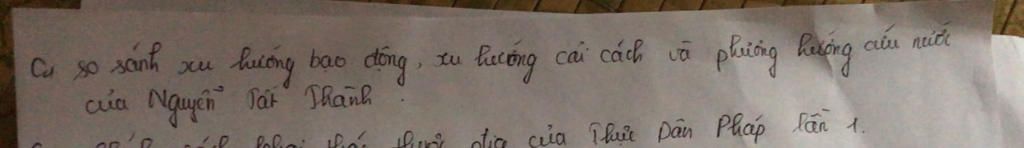 C4 so sánh xu hướng bạo động, xu hướng cải cách và phương hướng cứu nước
của Nguyễn Tất Thành.
khai thác thuộc địa của Thực Dân Pháp lần 1.